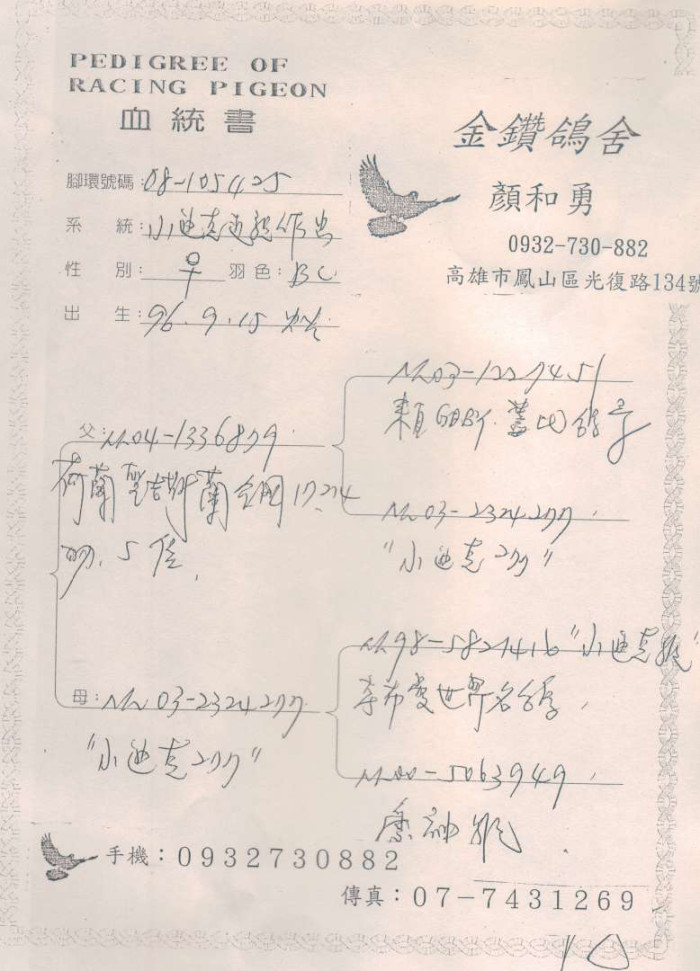 PEDIGREE OF
RACING PIGEON
血統書
金鑽鴿舍
顏和勇
0932-730-882
高雄市鳳山區光復路134號
腳環號碼:08-105425
系 統:小迪克近親作出
性 別:♀ 羽色:BC
出 生:96.9.15
父:NL04-1336879
荷蘭聖吉斯蘭全國17,214
羽.5位.
NL03-1227451
賴GABY.蓋比
NL03-2324277.
"小迪克277"
母:NL03-2324277
"小迪克277"
NL98-5821416"小迪克號"
世界名
NL00-5063949.
號
手機:0932730882
傳真:07-7431269
10